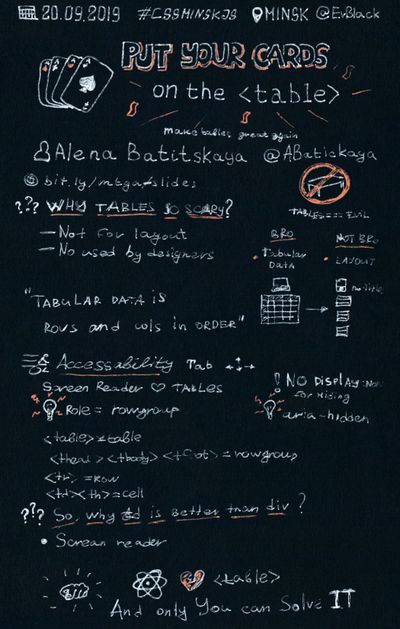 20.09.2019 #CSSMINSKJS MINSK @EvBlack
PUT YOUR CARDS
on the <table>
make tables great again
Alena Batitskaya @ABatickaya
bit.ly/mtga-slides
??? WHY TABLES SO SCARY?
TABLES === EVIL
— Not for layout
— No used by designers
BRO
• Tabular
DATA
NOT BRO
• LAYOUT
"TABULAR DATA IS
ROWS and cols in ORDER"
Accessability Tab
Screen Reader ♡ TABLES
Role = rowgroup
! NO DISPLAY: None
for Hiding
aria-hidden
<table> = table
<thead> <tbody> <tfoot> = rowgroup
<tr> = row
<td> <th> = cell
??? So, why td is better than div?
• Screan reader
<table>
And only You can Solve IT